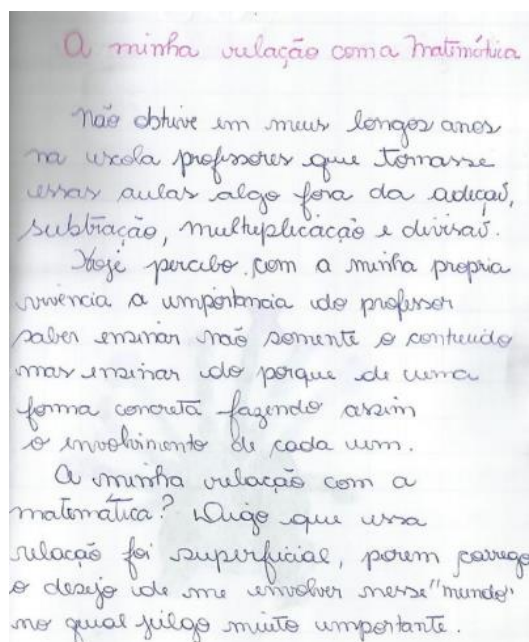 A minha relação com a Matemática
Não obtive em meus longos anos
na escola professores que tornasse
essas aulas algo fora da adição,
subtração, multiplicação e divisão.
Hoje percebo, com a minha propria
vivência a importancia do professor
saber ensinar não somente o conteudo
mas ensinar do porque de uma
forma concreta fazendo assim
o envolvimento de cada um.
A minha relação com a
matemática? Digo que essa
relação foi superficial, porem carrego
o desejo de me envolver nesse "mundo"
no qual julgo muito importante.